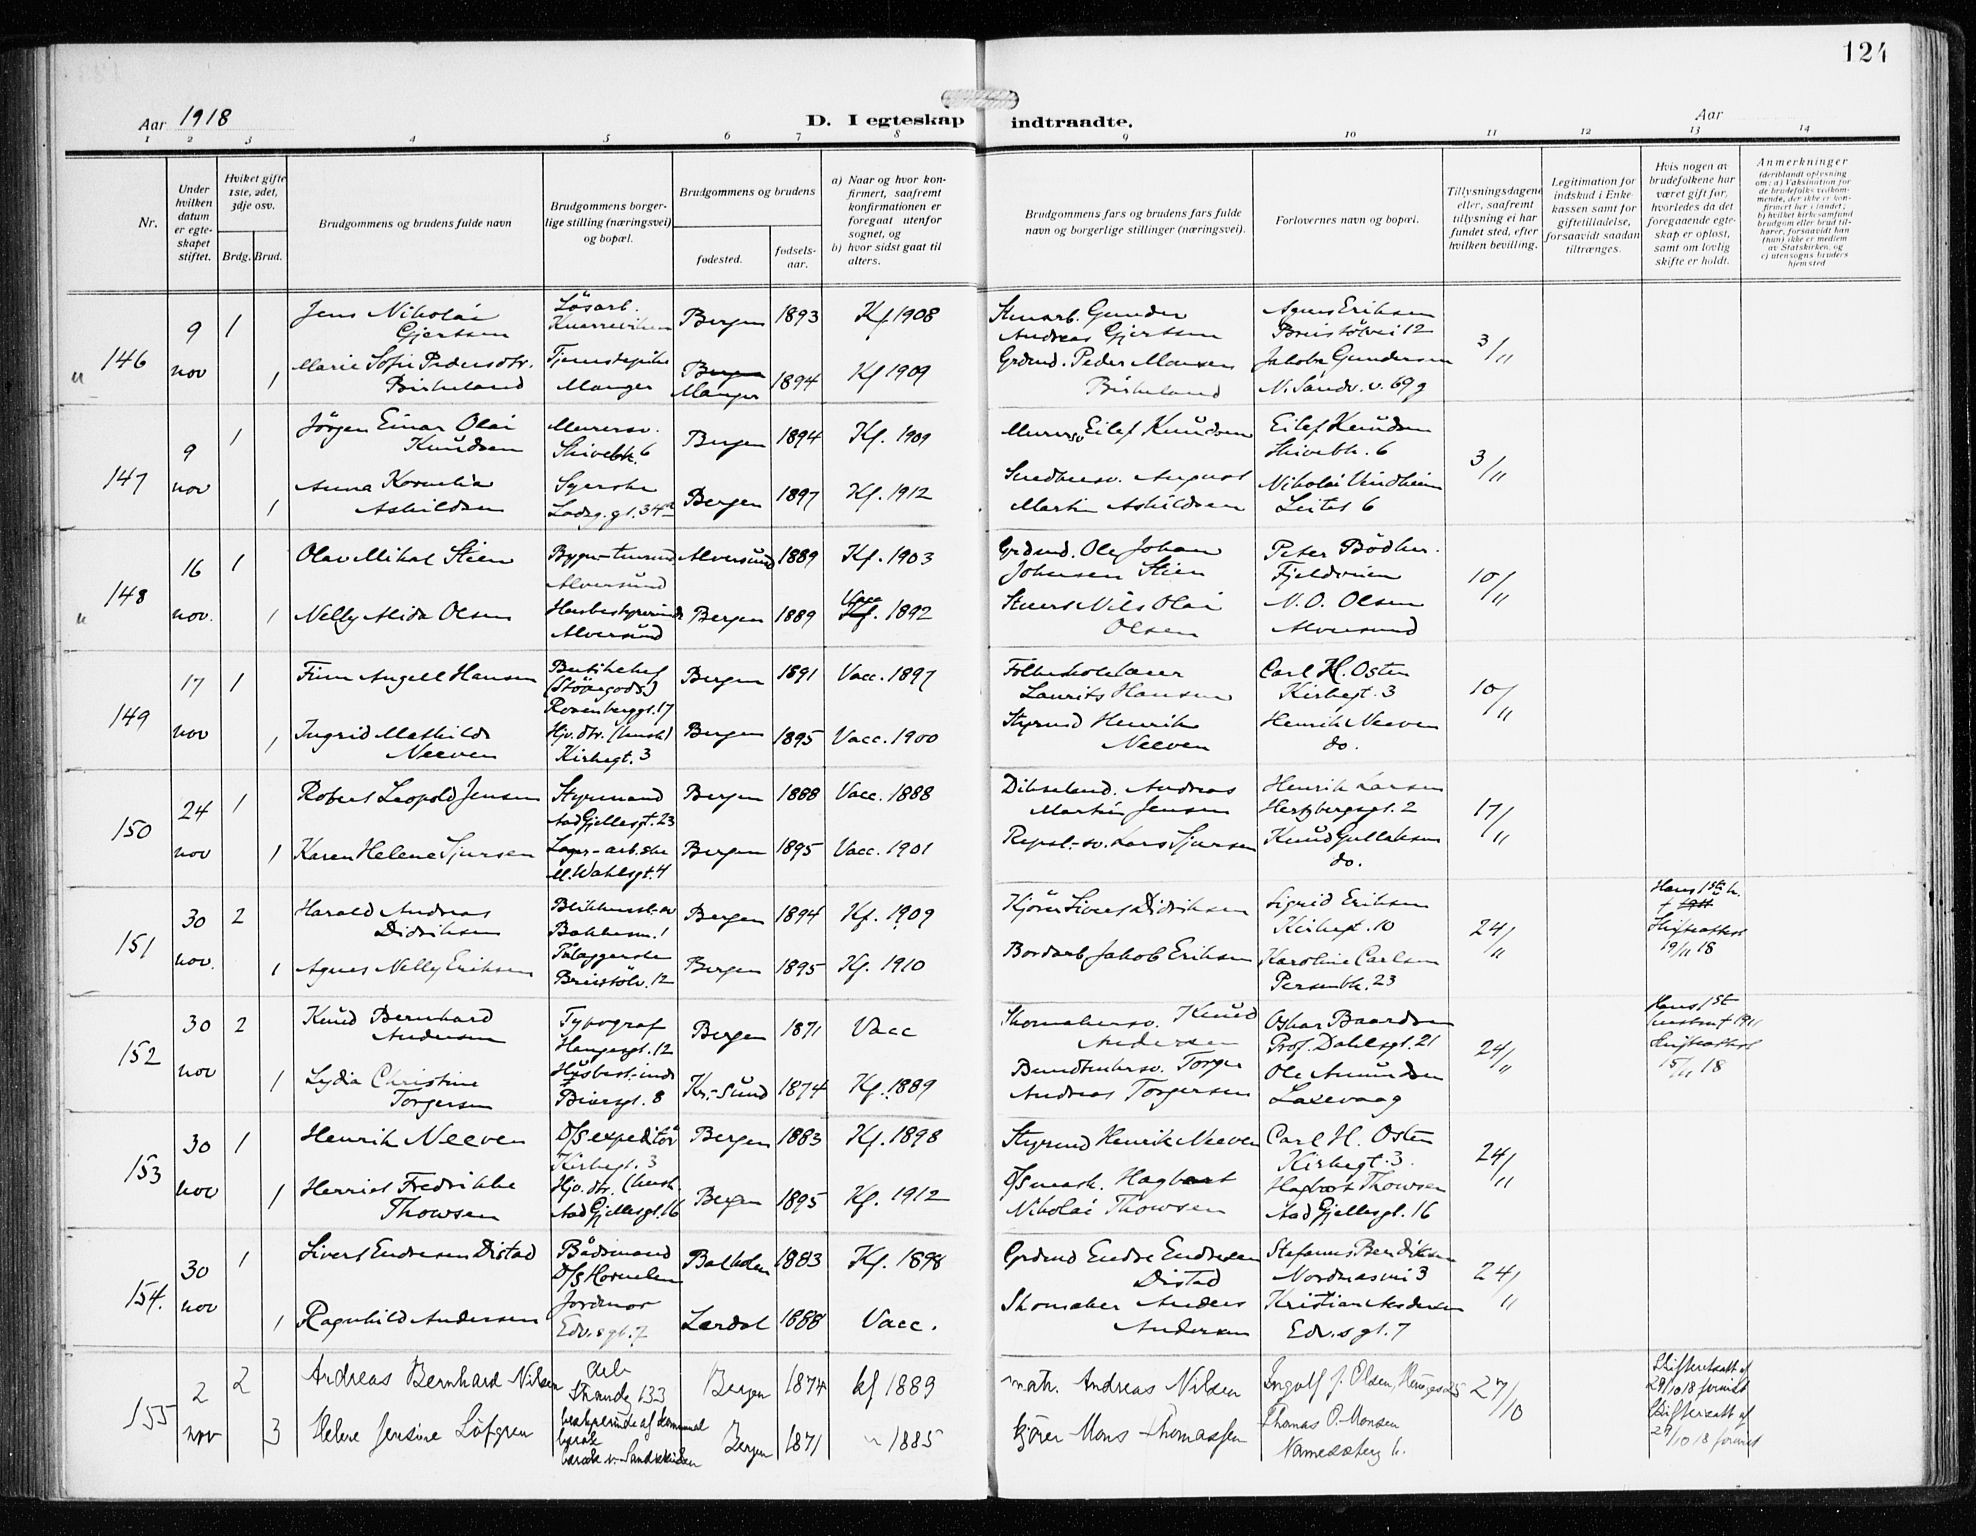 124
Aar 1918
D. I egteskap indtraadte.
Aar
1 2 3 4 5 6 7 8 9 10 11 12 13 14
Nr.
Under hvilken datum er egteskapet stiftet.
Hvilket gifte 1ste, 2det, 3dje osv.
Brdg. Brud.
Brudgommens og brudens fulde navn
Brudgommens borgerlige stilling (næringsvei) og bopæl.
Brudgommens og brudens
fødested.
fødselsaar.
a) Naar og hvor konfirmert, saafremt konfirmationen er foregaat utenfor sognet, og
b) hvor sidst gaat til alters.
Brudgommens fars og brudens fars fulde navn og borgerlige stillinger (næringsvei).
Forlovernes navn og bopæl.
Tillysningsdagene eller, saafremt tillysning ei har fundet sted, efter hvilken bevilling.
Legitimation for indskud i Enkekassen samt for giftetilladelse, forsaavidt saadan tiltrænges.
Hvis nogen av brudefolkene har været gift før, hvorledes da det foregaaende egteskap er opløst, samt om lovlig skifte er holdt.
Anmerkninger
146 9 nov 1 Jens Nikolai Gjertsen Løsarb. Bergen 1893 Kf. 1908 Gunder Andreas Gjertsen Agnes Eriksen Breistølvei 12 3/11
1 Marie Sofie Pedersdtr. Birkeland Tjenestepike Manger Bergen Manger 1894 Kf 1909 Grdmd. Peder Monsen Birkeland Jakob Gundersen N. Sandv. v. 69 g
147 9 nov 1 Jørgen Einar Olai Knudsen Murersv. Skivebk. 6 Bergen 1894 Kf. 1909 Murersv Eilef Knudsen Eilef Knudsen Skivebk. 6 3/11
1 Anna Kornelia Askildsen Syerske Ladeg. gt. 34 Bergen 1897 Kf. 1912 Smedsv. August Martin Askildsen Nikolai Vindheim Leitet 6
148 16 nov. 1 Olav Mikal Steen Alversund Alversund 1889 Kf. 1903 Grdmd. Ole Johan Johansen Steen Peter Bødker. Fjeldveien 10/11
1 Nelly Alida Olsen Husbestyrerinde Alversund Bergen 1889 Vacc Kf. 1892 Stuert Nils Olai Olsen N. O. Olsen Alversund
149 17 nov 1 Finn Angell Hansen Butikchef Rosenberggt. 17 Bergen 1891 Vacc. 1897 Folkeskolelærer Laurits Hansen Carl H. Osten Kirkegt. 3 10/11
1 Ingrid Mathilde Neeven Hjv. dtr. (hush) Kirkegt. 3 Bergen 1895 Vacc. 1900 Styrmd Henrik Neeven Henrik Neeven do.
150 24 nov 1 Robert Leopold Jensen Styrmand Aad Gjellesgt. 23 Bergen 1888 Vacc. 1888 Andreas Martin Jensen Henrik Larsen Hertzbergsgt. 2 17/11
1 Karen Helene Sjursen Lager-arb.ske M. Wahlsgt. 4 Bergen 1895 Vacc. 1901 Repsl.-sv. Lars Sjursen Knud Gullaksen do.
151 30 nov. 2 Harald Andreas Didriksen Bakkesm. 1 Bergen 1894 Kf. 1909 Kjører Sivert Didriksen Sigrid Eriksen Kirkegt. 10 24/11 Hans 1ste h. † 1911 Skifteattest 19/11 18
1 Agnes Nelly Eriksen Breistølv. 12 Bergen 1895 Kf. 1910 Bordarb. Jakob Eriksen Karoline Carlsen Persenbk. 23
152 30 nov 2 Knud Bernhard Andersen Typograf Haugesgt. 12 Bergen 1871 Vacc Skomakersv. Knud Andersen Oskar Baardsen Prof. Dahlsgt. 21 24/11 Hans 1ste hustru † 1911 Skifteattest 15/11 18
1 Lydia Christine Torgersen Husbest.-inde Biversgt. 8 Kr.-Sund 1874 Kf. 1889 Bundtmkersv. Torger Andreas Torgersen Ole Amundsen Laxevaag
153 30 nov 1 Henrik Neeven D/S expeditør Kirkegt. 3 Bergen 1883 Kf. 1898 Styrmd Henrik Neeven Carl H. Osten Kirkegt. 3. 24/11
1 Herriet Fredrikke Thowsen Hjv. dtr. (husk. Aad Gjellesgt. 16 Bergen 1895 Kf. 1912 D/S mask. Hagbart Nikolai Thowsen Hagbart Thowsen Aad Gjellesgt. 16
154. 30 nov 1 Sivert Endresen Distad Bådsmand D/S Hornelen Balholm 1883 Kf. 1898 Grdmd Endre Endresen Distad Stefanus Bendiksen Nordnæsvei 3 24/11
1 Ragnhild Andersen Jordmor Edv.s gt. 7 Lærdal 1888 Vacc. Skomaker Anders Andersen Kristian Andersen Edv.s gt. 7
155 2 nov 2 Andreas Bernhard Nilsen arb Strandg 133 Bergen 1874 kf 1889 matr. Andreas Nilsen Ingolf J. Olsen, Hauges 25 27/10 Skifteretsatt af 29/10 18 forevist
3 Helene Jensine Løfgren bestyrerinde af kommunal barak barak v. Sandvikskirken Bergen 1871 " 1885 kjører Mons Thomassen Thomas O. Monsen 6. Skifteretsatt af 29/10 18 forevist